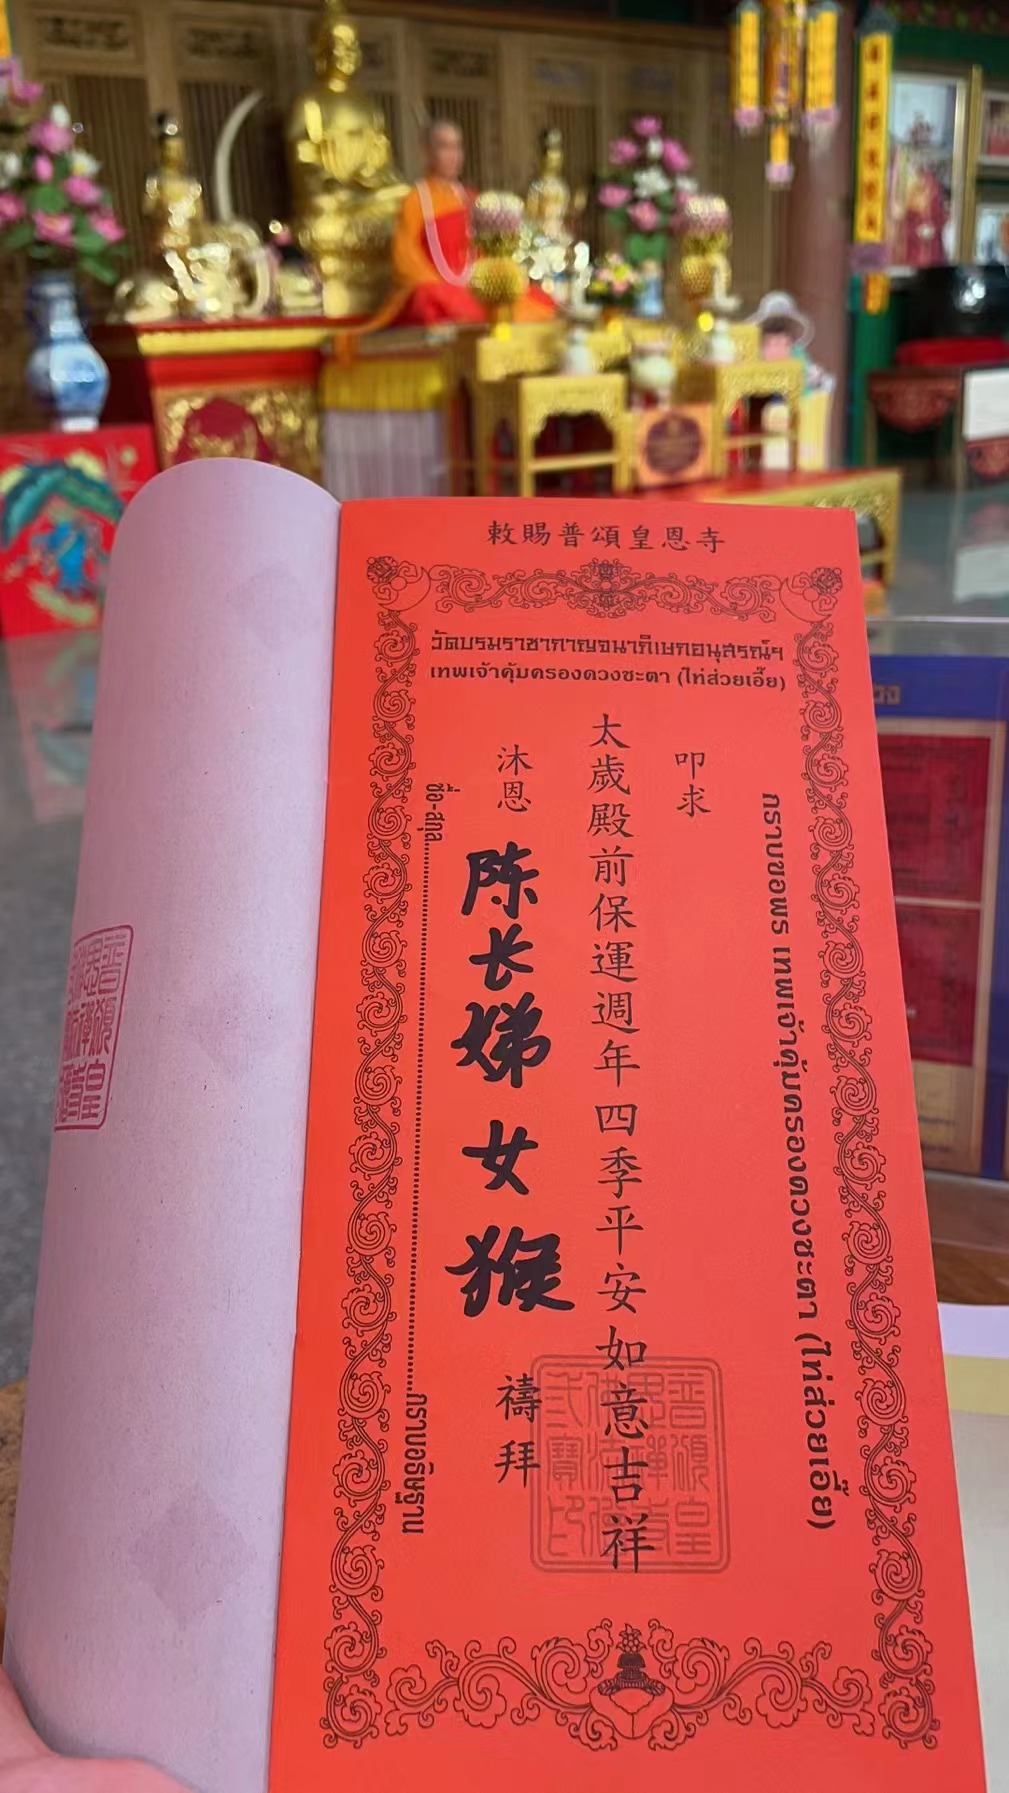 敕賜普頌皇恩寺
วัดบรมราชากาญจนาภิเษกอนุสรณ์ฯ
เทพเจ้าคุ้มครองดวงชะตา (ไท่ส่วยเอี๊ย)
กราบขอพร เทพเจ้าคุ้มครองดวงชะตา (ไท่ส่วยเอี๊ย)
叩求
太歲殿前保運週年四季平安如意吉祥
沐恩 陈长娣 女 猴 禱拜
ชื่อ-สกุล กราบอธิษฐาน